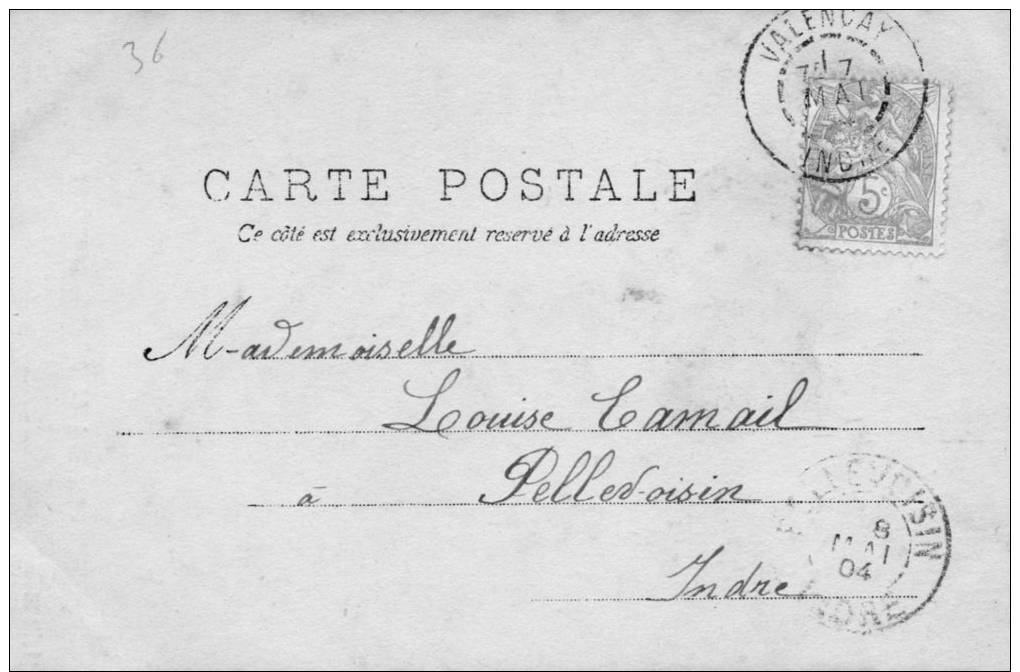 36
VALENCAY
7
MAI
INDRE
5c
POSTES
CARTE POSTALE
Ce côté est exclusivement reservé à l'adresse
Mademoiselle
Louise Camail
à Pellevoisin
Indre
PELLEVOISIN
8
MAI
04
INDRE